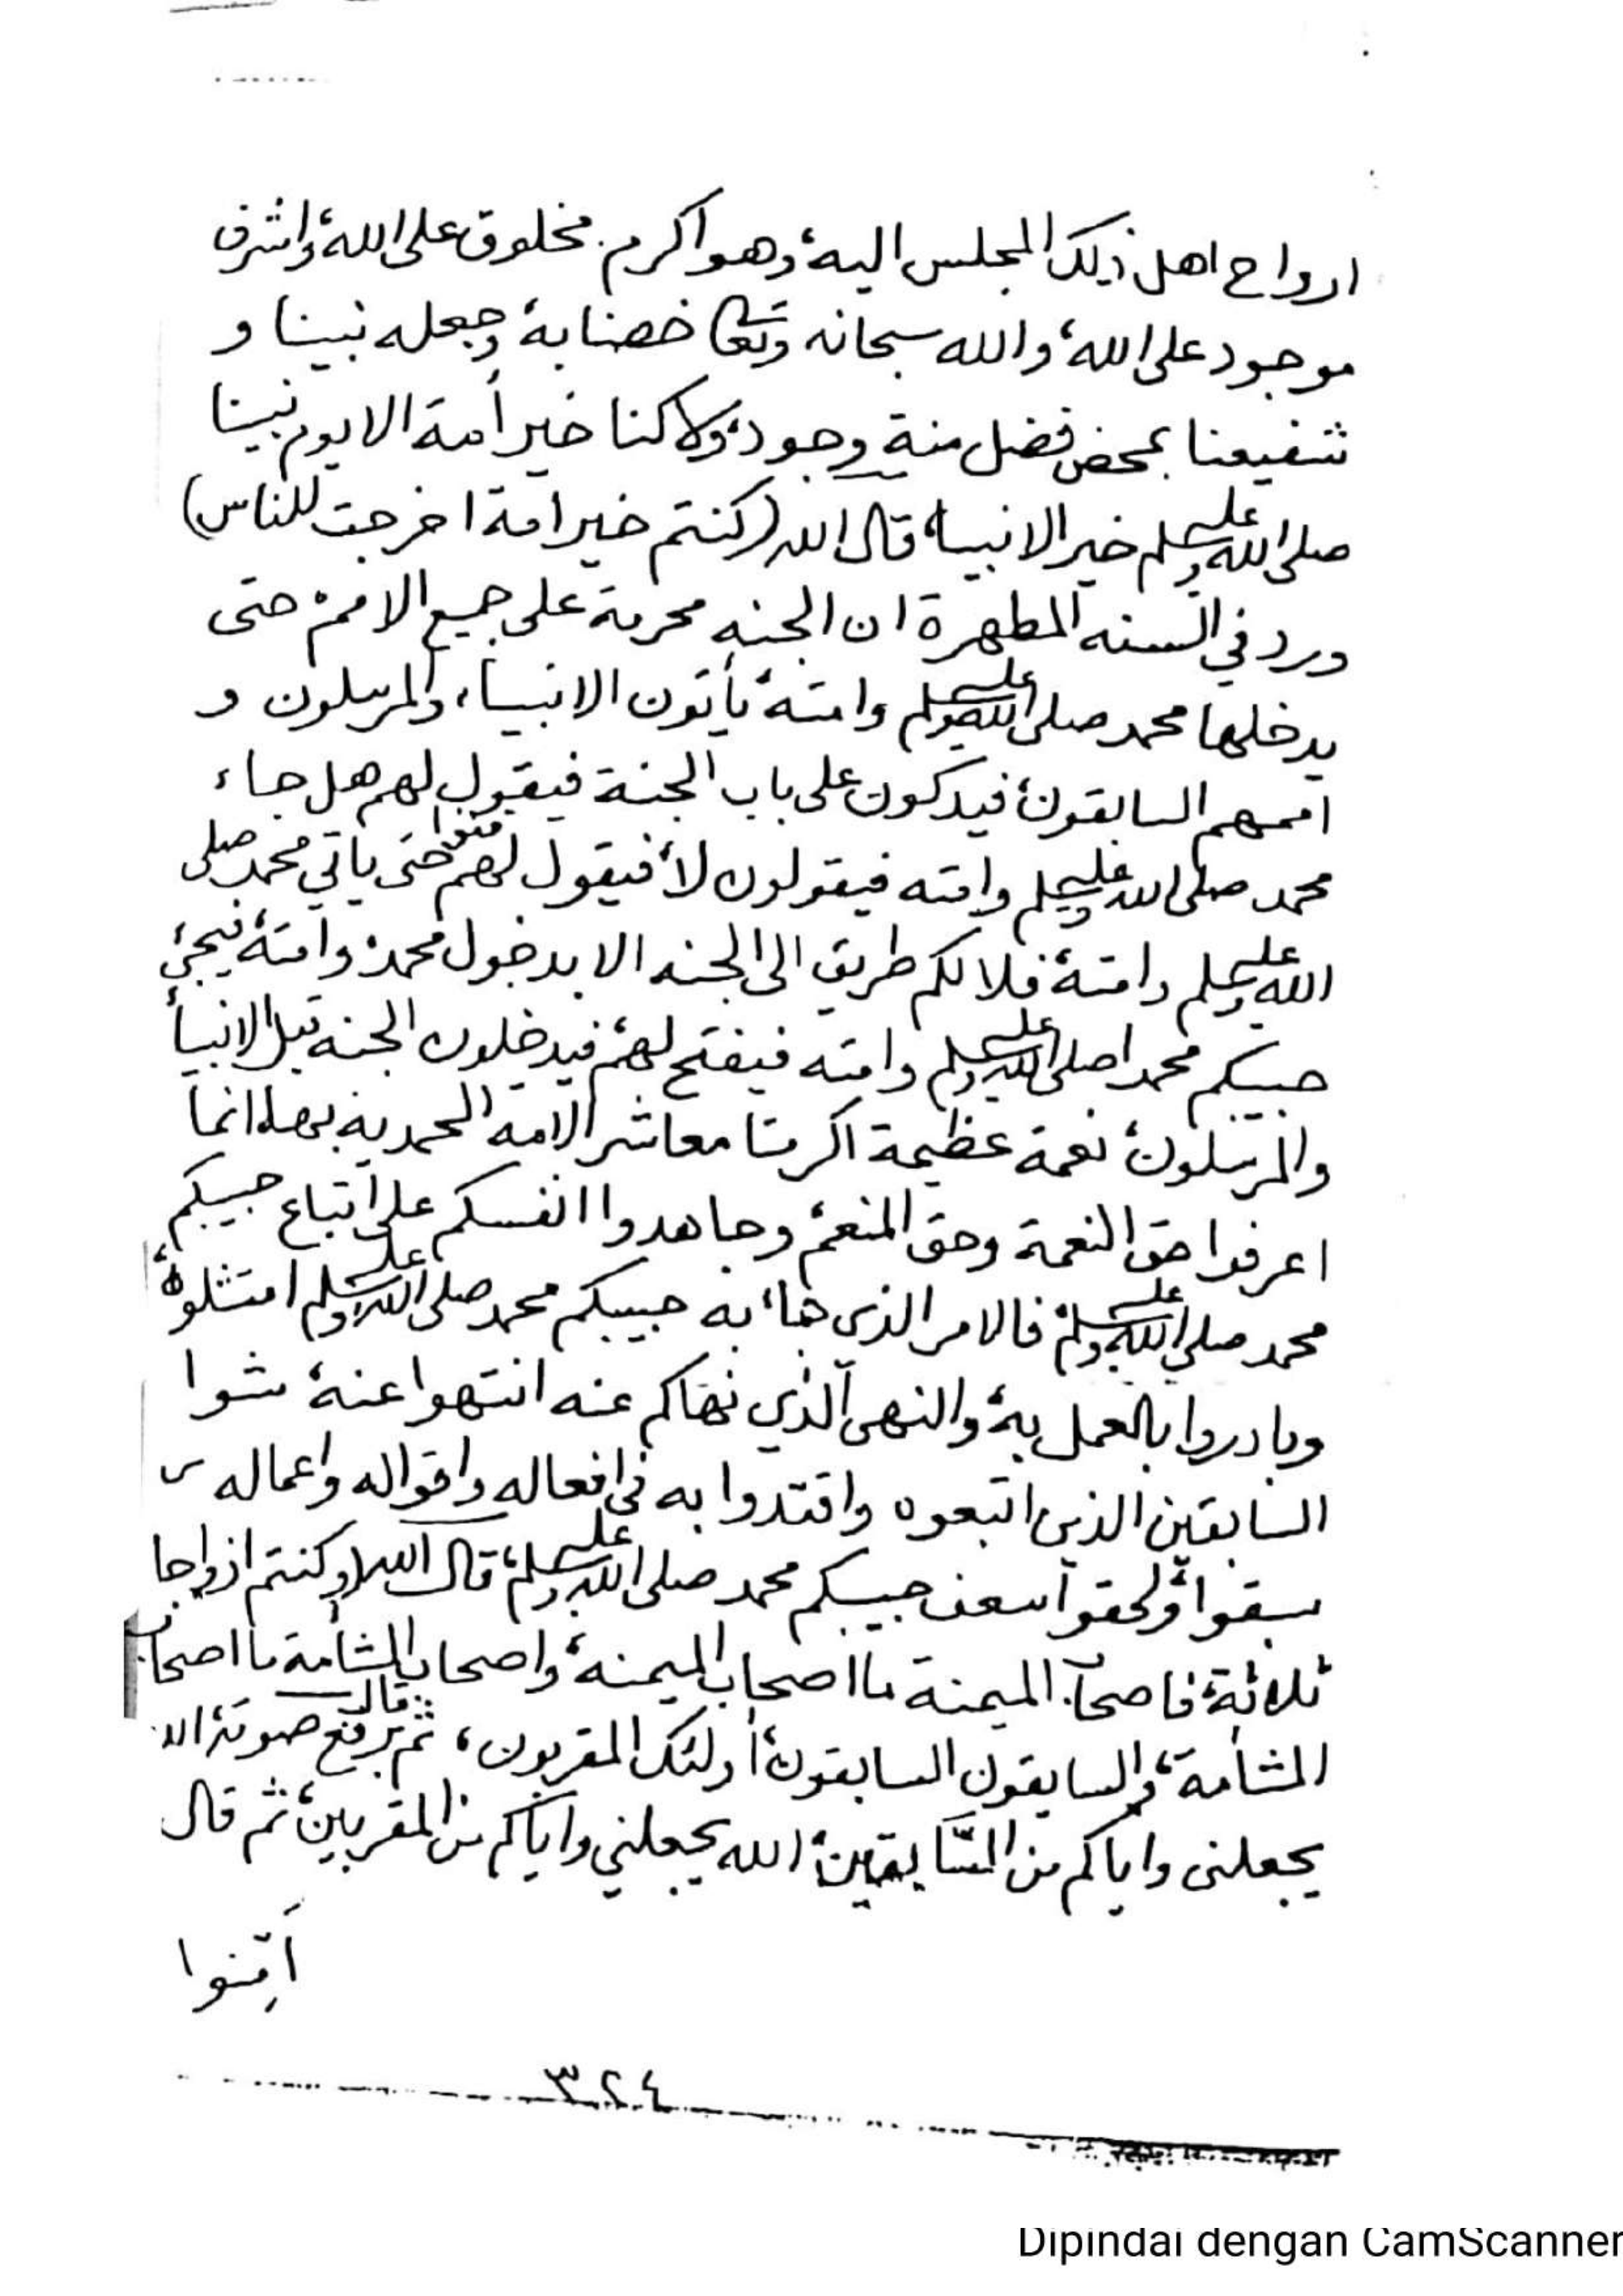 ارواح اهل ذلك المجلس اليه، وهو اكرم مخلوق على الله، واشرف
موجود على الله، والله سبحانه وتعالى خصنا به، وجعله نبينا و
شفيعنا بمحض فضل منة وجود، ولا كنا خير أمة الا يوم نبينا
صلى الله عليه وسلم خير الانبياء، قال الله (كنتم خير امة اخرجت للناس)
ورد في السنه المطهرة ان الجنه محرمة على جميع الامم، حتى
يدخلها محمد صلى الله عليه وسلم وامته، يأتون الانبياء، والمرسلون و
اممهم السابقون، فيدكون على باب الجنة فيقول لهم هل جاء
محمد صلى الله عليه وسلم وامته فيقولون لا، فيقول لهم قفوا حتى ياتي محمد صلى
الله عليه وسلم وامته، فلا لكم طريق الى الجنه الا بدخول محمد، وامته، فيجئ
حبيبكم محمدا صلى الله عليه وسلم وامته فيفتح لهم، فيدخلون الجنه قبل الانبيأ
والمرسلون، نعمة عظيمة اكرمنا معاشر الامه المحمديه بها، انما
اعرفوا حق النعمة وحق المنعم، وجاهدوا انفسكم على اتباع حبيبكم
محمد صلى الله عليه وسلم، فالامر الذي جاء به حبيبكم محمد صلى الله عليه وسلم امتثلوه،
وبادروا بالعمل به، والنهي الذي نهاكم عنه انتهوا عنه، مشوا
السابقين الذين اتبعوه واقتدوا به في افعاله واقواله واعماله
سبقوا، ولحقوا حبيبكم محمد صلى الله عليه وسلم، قال الله (وكنتم ازواجا
ثلاثة، فاصحاب الميمنة ما اصحاب الميمنه، واصحاب المشأمة ما اصحاب
المشأمة، والسابقون السابقون، أولئك المقربون، ثم يرفع صوته، قال الله
يجعلني واياكم من السابقين، الله يجعلني واياكم من المقربين، ثم قال
أمِّنوا
٣٢٤
Dipindai dengan CamScanner